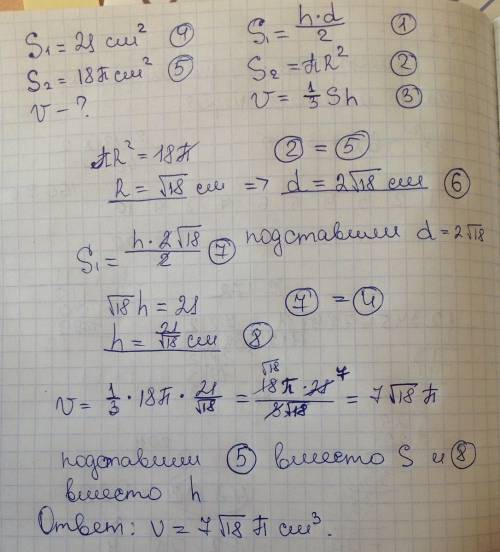 S₁ = 21 см² ④
S₂ = 18π см² ⑤
V - ?
S₁ = h·d/2 ①
S₂ = πR² ②
V = 1/3 Sh ③
πR² = 18π ② = ⑤
R = √18 см => d = 2√18 см ⑥
S₁ = h·2√18/2 ⑦ подставили d = 2√18
√18 h = 21 ⑦ = ④
h = 21/√18 см ⑧
V = 1/3 · 18π · 21/√18 = 18π · 21/3√18 = 7√18 π
√18 7
подставили ⑤ вместо S и ⑧
вместо h
Ответ: V = 7√18 π см³.